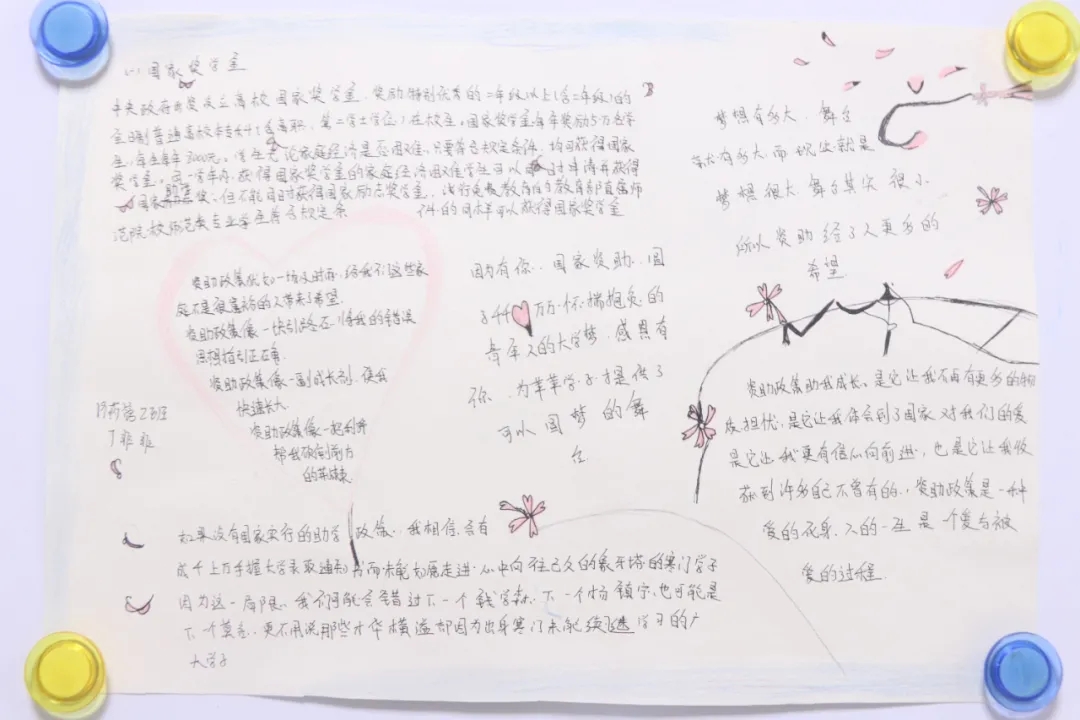 (一)国家奖学金
中央政府出资设立高校国家奖学金,奖励特别优秀的二年级以上(含二年级)的
全日制普通高校本专科(含高职、第二学士学位)在校生,国家奖学金每年奖励5万名学
生,每生每年8000元,学生无论家庭经济是否困难,只要符合规定条件,均可获得国家
奖学金。同一学年内,获得国家奖学金的家庭经济困难学生可以同时申请并获得
国家助学金,但不能同时获得国家励志奖学金。试行免费教育的教育部直属师
范院校师范类专业学生符合规定条件的同样可以获得国家奖学金
资助政策犹如一场及时雨,给我们这些家
庭不是很富裕的人带来了希望
资助政策像一块引路石,将我的错误
思想指引正确
资助政策像一副成长剂,使我
快速长大
资助政策像一把利斧
帮我砍削前方
的荆棘
药营2班
丁菲菲
因为有你,国家资助,圆
了千万万怀揣抱负的
青年人的大学梦,感恩有
你,为莘莘学子提供了
可以圆梦的舞
台
梦想有多大,舞台
就有多大,而现实就是
梦想很大舞台其实很小
所以资助给了人更多的
希望
资助政策助我成长,是它让我不再有更多的
担忧,是它让我体会到了国家对我们的爱
是它让我更有信心向前进,也是它让我收
获到许多自己不曾有的,资助政策是一种
爱的化身,人的一生是一个爱与被
爱的过程
如果没有国家实行的助学政策,我相信会有
成千上万手握大学录取通知书而未能如愿走进心中向往已久的象牙塔的寒门学子
因为这一局限,我们可能会错过下一个钱学森,下一个杨镇宁,也可能是
下一个莫言,更不用说那些才华横溢却因为出身寒门未能继续学习的广
大学子